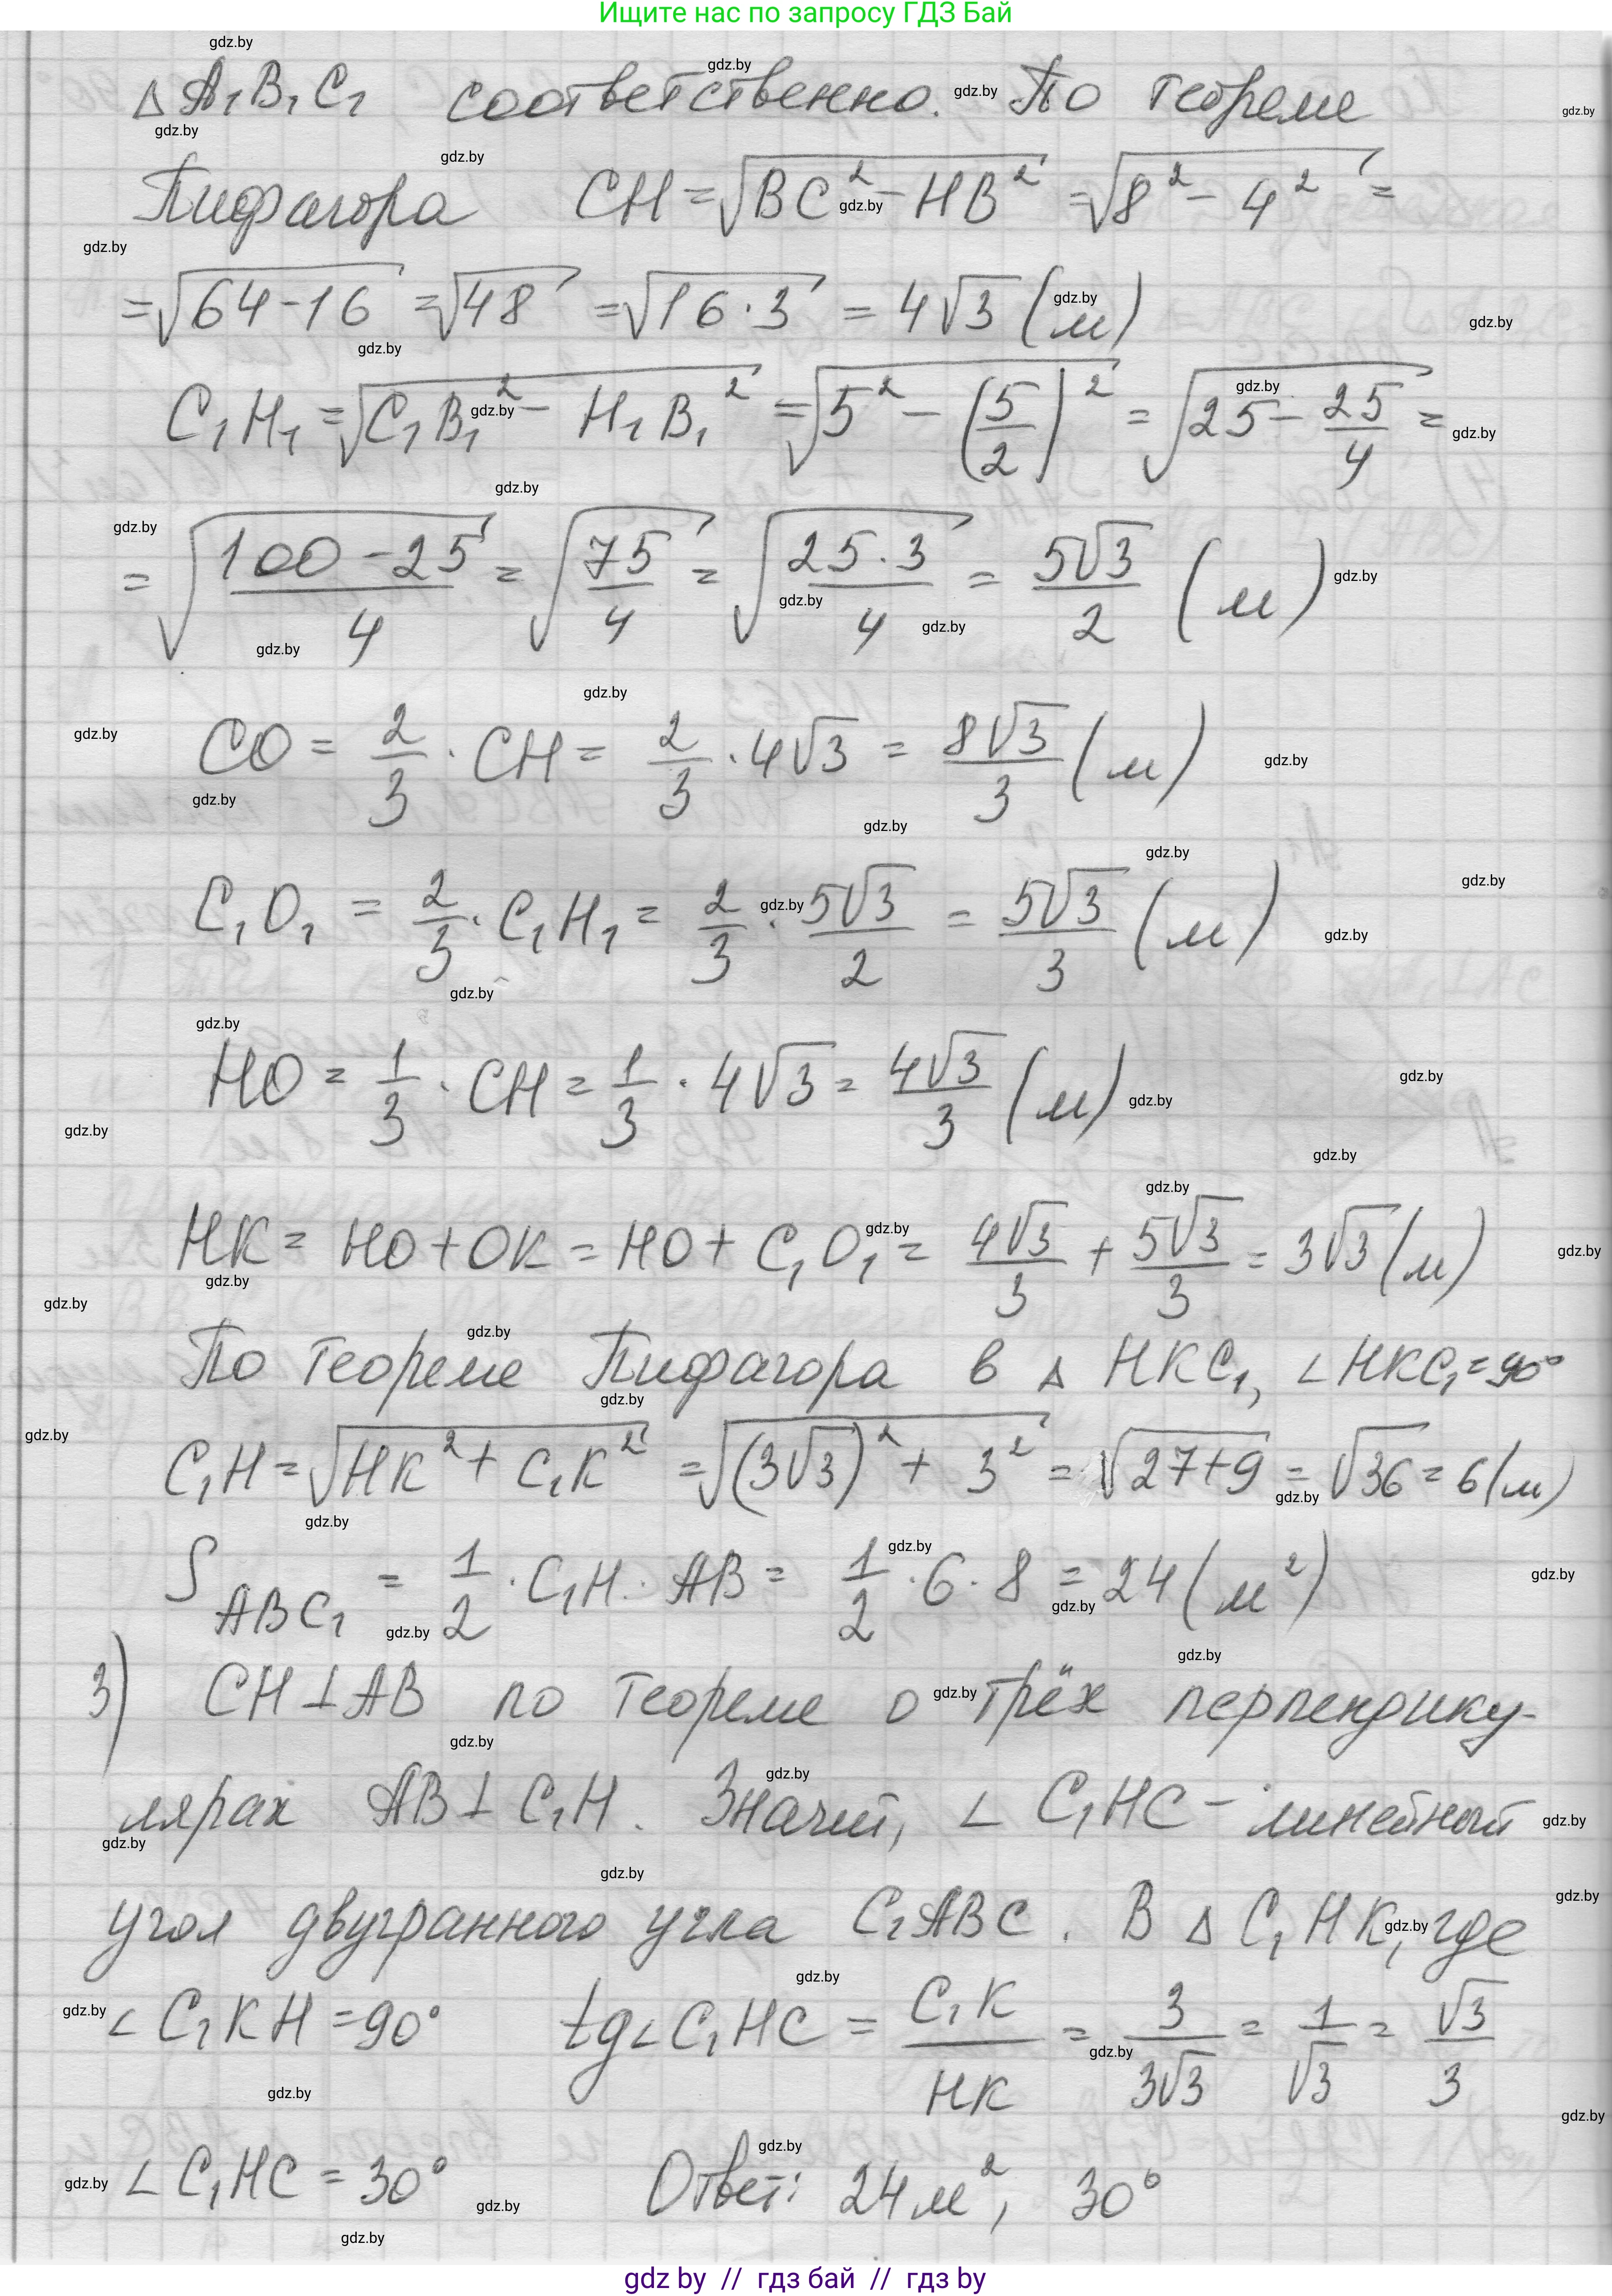 Ищите нас по запросу ГДЗ Бай
△ A₁B₁C₁ соответственно. По теореме
Пифагора CH = √(BC² - HB²) = √(8² - 4²) =
= √(64 - 16) = √48 = √(16 · 3) = 4√3 (м)
C₁H₁ = √(C₁B₁² - H₁B₁²) = √(5² - (5/2)²) = √(25 - 25/4) =
= √((100 - 25)/4) = √(75/4) = √((25 · 3)/4) = 5√3/2 (м)
CO = 2/3 · CH = 2/3 · 4√3 = 8√3/3 (м)
C₁O₁ = 2/3 · C₁H₁ = 2/3 · 5√3/2 = 5√3/3 (м)
HO = 1/3 · CH = 1/3 · 4√3 = 4√3/3 (м)
HK = HO + OK = HO + C₁O₁ = 4√3/3 + 5√3/3 = 3√3 (м)
По теореме Пифагора в △ HKC₁, ∠HKC₁ = 90°
C₁H = √(HK² + C₁K²) = √((3√3)² + 3²) = √(27 + 9) = √36 = 6 (м)
S ABC₁ = 1/2 · C₁H · AB = 1/2 · 6 · 8 = 24 (м²)
3) CH ⊥ AB по теореме о трёх перпендику-
лярах AB ⊥ C₁H. Значит, ∠ C₁HC - линейный
угол двугранного угла C₁ABC. В △ C₁HK, где
∠ C₁KH = 90° tg∠C₁HC = C₁K/HK = 3/3√3 = 1/√3 = √3/3
∠ C₁HC = 30° Ответ: 24 м², 30°
gdz by // гдз бай // гдз by